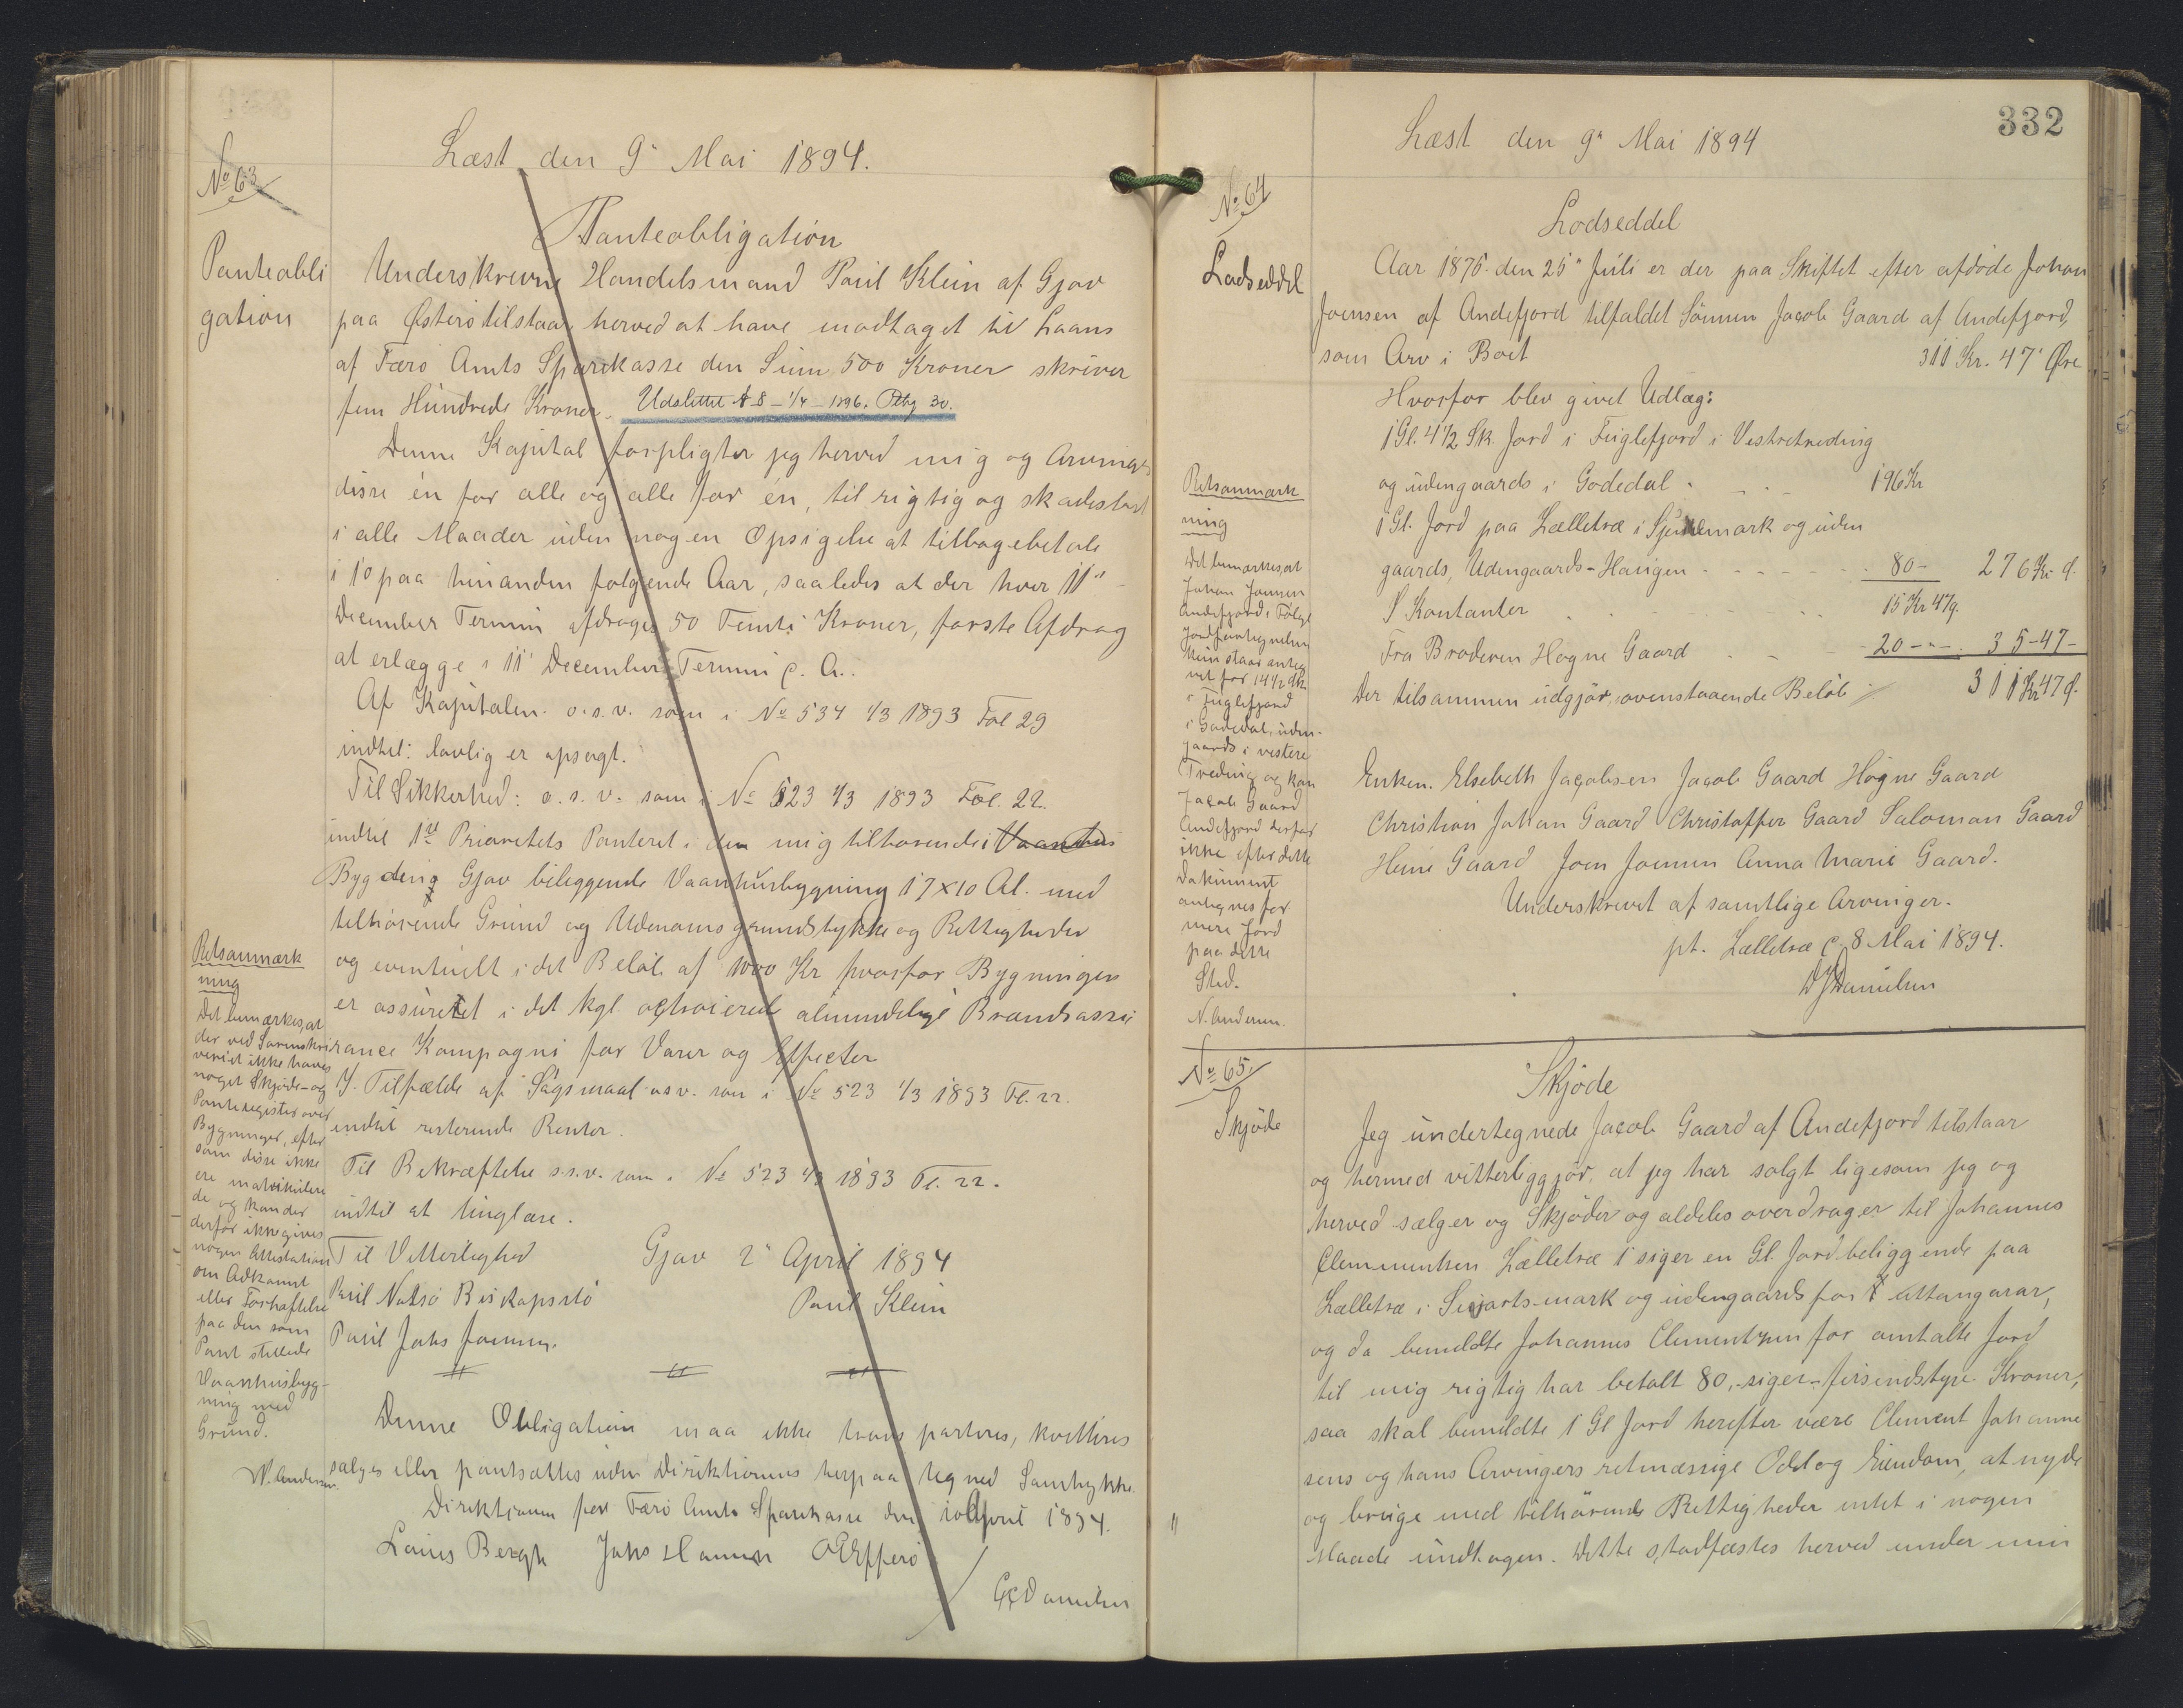 Læst den 9" Mai 1894.
No 63
Panteobligation
Panteobli
gation
Underskrevne Handelsmand Poul Klein af Gjov
paa Østerö tilstaar herved at have modtaget til Laans
af Færö Amts Sparekasse den Sum 500 Kroner skriver
fem Hundrede Kroner. Udslettet A 8 - 1/4 - 1896. Ptbg 30.
Denne Kapital forpligter jeg herved mig og Arvinger
disse én for alle og alle for én, til rigtig og skadeslöst
i alle Maader uden nogen Opsigelse at tilbagebetale
i 10 paa hinanden følgende Aar, saaledes at der hver 11"
December Termin afdrages 50 Femti Kroner, forste Afdrag
at erlægge i 11' December Termin c. A.
Af Kapitalen o.s.v. som i No 534 1/3 1893 Fol 29
indtil: lovlig er opsagt.
Til Sikkerhed: o. s. v. som i No 523 1/3 1893 Fol. 22.
indtil 1ste Prioritets Panteret i den mig tilhörende i
Bygding Gjov beliggende Vaanhusbygning 17 x 10 Al. med
tilhörende Grund og Udenomsgrundstykke og Rettigheder
og eventuelt i det Belöb af 1000 Kr hvorfor Bygningen
er assureret i det kgl. octroierede almindelige Brandassu
rance Kompagni for Varer og Effecter
I Tilfælde af Sögsmaal osv. som i No 523 1/3 1893 Fl. 22.
indtil resterende Renter.
Til Bekræftelse o.s.v. som i No 523 1/3 1893 Fl. 22.
indtil at tinglæse.
Til Vitterlighed Gjov 2" April 1894
Poul Nolsö Biskopsstö Poul Klein
Poul Johs Joensen.
Denne Obligation maa ikke transporteres, kvitteres
sælges eller pantsættes uden Direktionens herpaa tegned Samtykke.
Direktionen for Færö Amts Sparekasse den 10 April 1894.
Louis Bergh Johs Hansen OEEfferö
Danielsen
Retsanmærk
ning
Det bemærkes, at
der ved Sorenskri
veriet ikke haves
noget Skjöde- og
Panteregister over
Bygninger, efter
som disse ikke
ere matrikulere
de og kan der
derfor ikke gives
nogen Attestation
om Adkomst
eller Forhæftelse
paa den som
Pant stillede
Vaanhusbyg-
ning med
Grund.
N. Andersen.
332
Læst den 9" Mai 1894
No 64
Lodseddel
Lodseddel
Aar 1876 den 25" Juli er der paa Skiftet efter afdöde Johan
Joensen af Andefjord tilfaldet Sönnen Jacob Gaard af Andefjord,
som Arv i Boet 311 Kr. 47 Øre
Hvorfor blev givet Udlæg:
1 Gl. 4 1/2 Sk. Jord i Fuglefjord i Vestretreding
og udengaards i Godedal 196 Kr
1 Gl. Jord paa Lælletræ i mark og uden
gaards, Udengaards-Haugen 80 - 276 Kr Ø.
I Kontanter 15 Kr 47 Ø.
Fra Broderen Hogne Gaard 20 - " - 35 - 47 -
Der tilsammen udgjör ovenstaaende Belöb 311 Kr 47 Ø.
Enken. Elsebeth Jacobsen Jacob Gaard Högne Gaard
Christian Johan Gaard Christoffer Gaard Salomon Gaard
Heine Gaard Joen Joensen Anna Marie Gaard.
Underskrevet af samtlige Arvinger.
pt. Lælletræ c. 8 Mai 1894.
DJDanielsen
Retsanmærk
ning
Det bemærkes, at
Johan Joensen
Andefjord i Følge
Jordfortegnelsen
kun staar anteg
net for 14 1/2 Sk.
i Fuglefjord
i Godedal, uden-
gaards i vestere
Treding og kan
Jacob Gaard
Andefjord derfor
ikke efter dette
Dokument
antegnes for
mere Jord
paa dette
Sted.
N. Andersen.
No 65.
Skjöde
Skjöde
Jeg undertegnede Jacob Gaard af Andefjord tilstaar
og hermed vitterliggjör, at jeg har solgt ligesom jeg og
herved sælger og Skjöder og aldeles overdrager til Johannes
Clementsen Lælletræ 1 siger en Gl. Jord beliggende paa
Lælletræ i mark og udengaards for
og da bemeldte Johannes Clementsen for omtalte Jord
til mig rigtig har betalt 80, - siger - firsindstyve Kroner,
saa skal bemeldte 1 Gl Jord herefter være Clement Johanne
sens og hans Arvingers retmæssige Odel og Eiendom, at nyde
og bruge med tilhörende Rettigheder intet i nogen
Maade undtagen. Dette stadfæstes herved under min